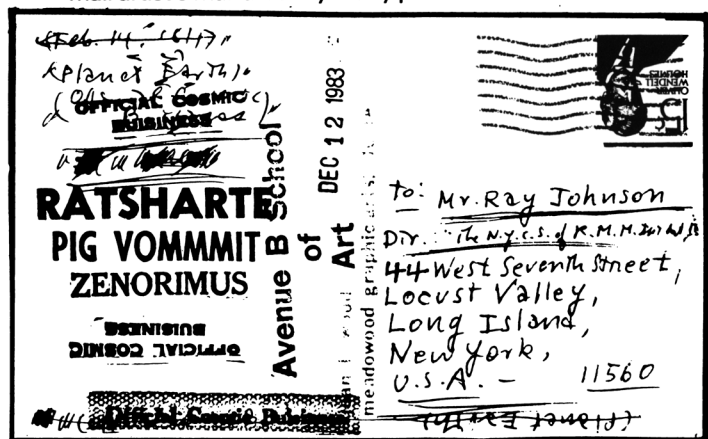 Feb. 14.
(Planet Earth).
OFFICIAL COSMIC
BUISINESS
RATSHARTE
PIG VOMMMIT
ZENORIMUS
OFFICIAL COSMIC
BUISINESS
Avenue B School
of
Art
DEC 12 1983
meadowood graphic arts.
OLIVER
WENDELL
HOLMES
15c
to: Mr. Ray Johnson
Dir. The N.y.c.S. of
44 West Seventh Street,
Locust Valley,
Long Island,
New York,
U.S.A. - 11560
(Planet Earth)
Official Cosmic Buisiness